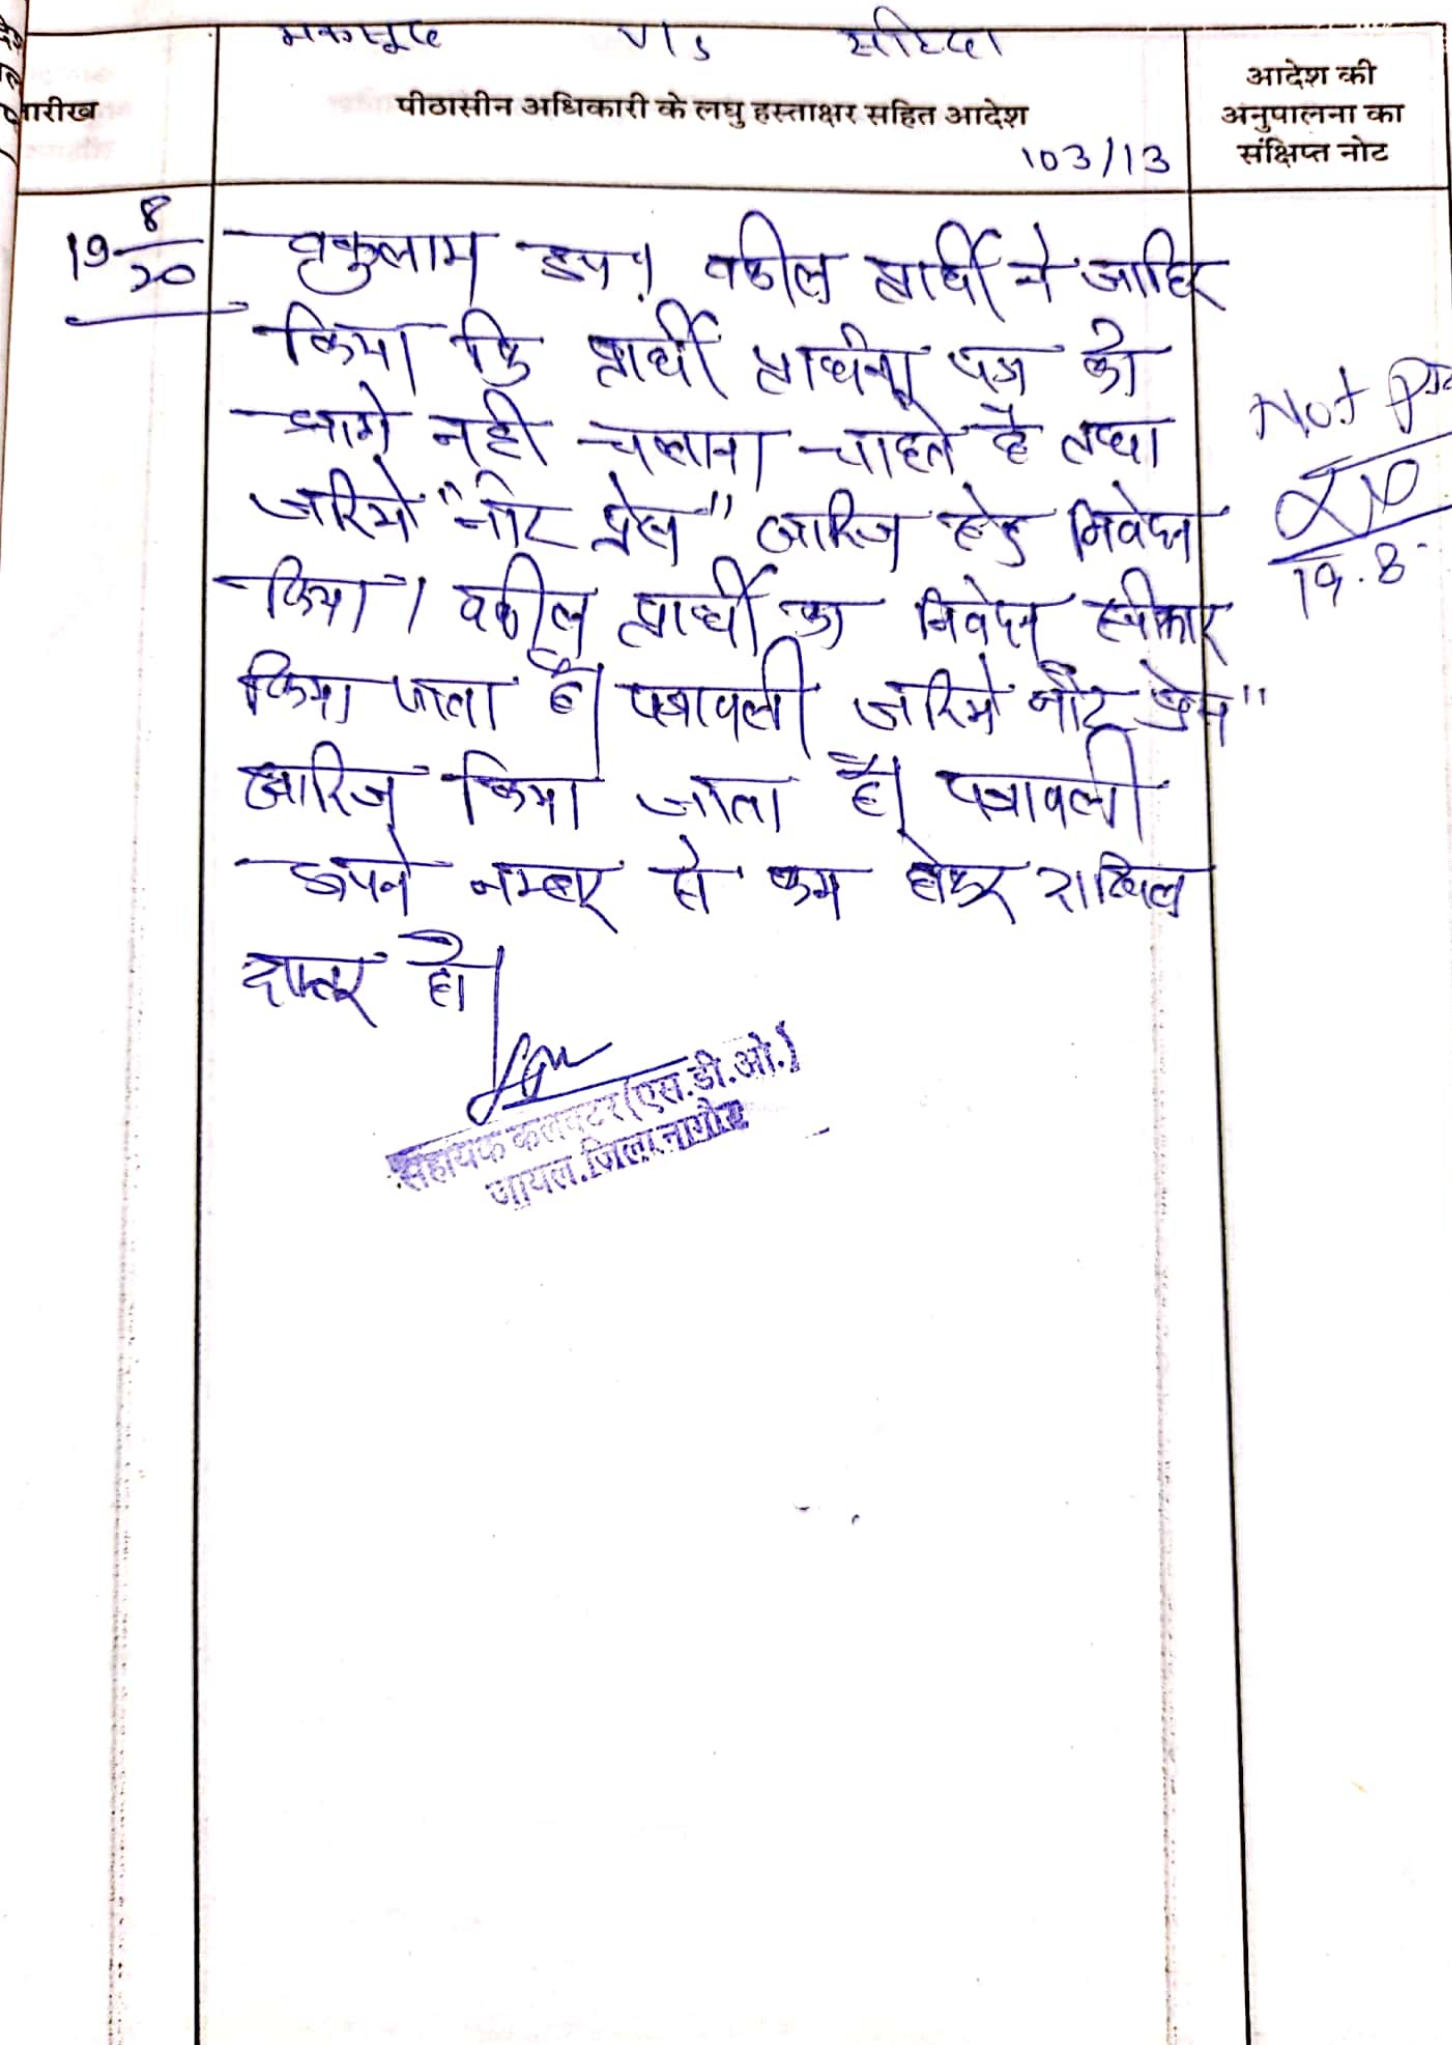 मकसूद V/s सहिदा
तारीख
पीठासीन अधिकारी के लघु हस्ताक्षर सहित आदेश
103/13
आदेश की
अनुपालना का
संक्षिप्त नोट
19 8/20
वकुलाम उप। वकील प्रार्थी ने जाहिर
किया कि प्रार्थी प्रार्थना पत्र को
आगे नही चलाना चाहते है तथा
जरिये "नोट प्रेस" खारिज हेतु निवेदन
किया। वकील प्रार्थी का निवेदन स्वीकार
किया जाता है। पत्रावली जरिये नोट प्रेस"
खारिज किया जाता है। पत्रावली
अपने नम्बर से कम होकर दाखिल
दफ्तर हो।
Not
19.8
सहायक कलक्टर (एस.डी.ओ.)
जायल, जिला नागौर